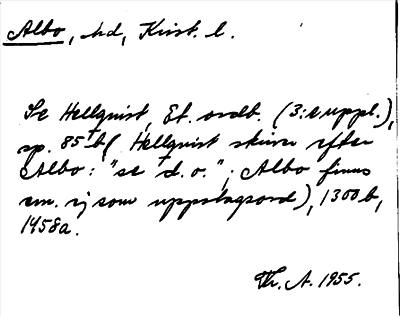 Albo, hd, Krist. l.
Se Hellquist, Et. ordb. (3:e uppl.),
sp. 85 b (Hellquist skriver efter
Albo: "se d. o."; Albo finns
em. ej som uppslagsord), 1300 b,
1458 a.
Th. A. 1955.